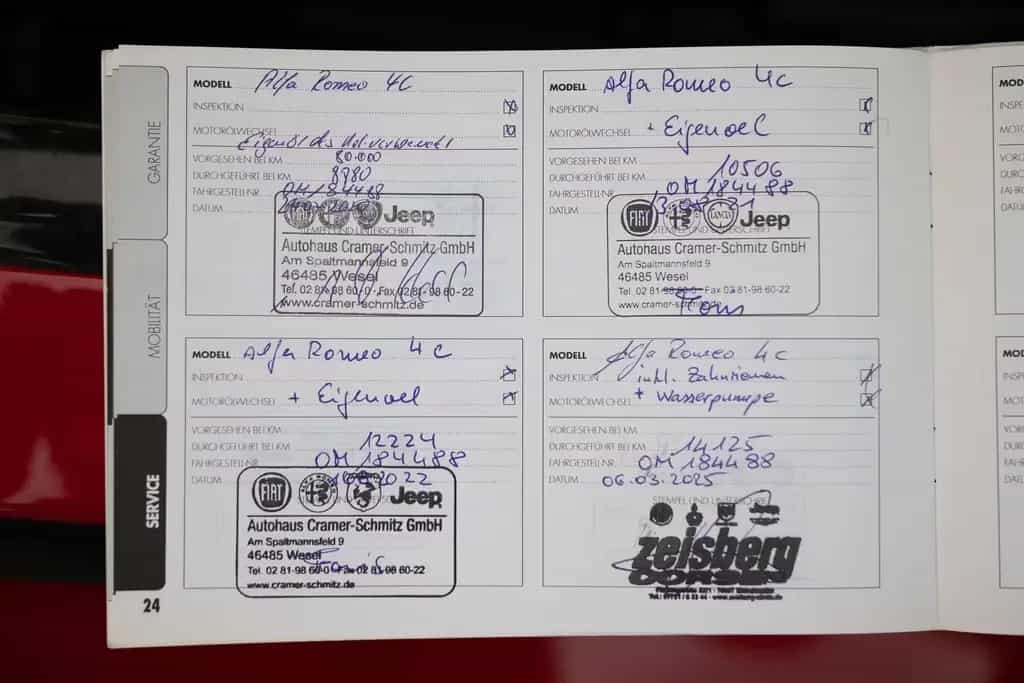 GARANTIE
MOBILITÄT
SERVICE
24
MODELL Alfa Romeo 4C
INSPEKTION
MOTORÖLWECHSEL
VORGESEHEN BEI KM
DURCHGEFÜHRT BEI KM 8980
FAHRGESTELL-NR. 0M184488
DATUM
Jeep
STEMPEL UND UNTERSCHRIFT
Autohaus Cramer-Schmitz GmbH
Am Spaltmannsfeld 9
46485 Wesel
Tel. 02 81-98 60-0 · Fax 02 81-98 60-22
www.cramer-schmitz.de
MODELL Alfa Romeo 4C
INSPEKTION
MOTORÖLWECHSEL + Eigenoel
VORGESEHEN BEI KM
DURCHGEFÜHRT BEI KM 10506
FAHRGESTELL-NR. 0M184488
DATUM
FIAT LANCIA Jeep
Autohaus Cramer-Schmitz GmbH
Am Spaltmannsfeld 9
46485 Wesel
Tel. 02 81-98 60-0 · Fax 02 81-98 60-22
www.cramer-schmitz.de
MODELL Alfa Romeo 4C
INSPEKTION
MOTORÖLWECHSEL + Eigenoel
VORGESEHEN BEI KM
DURCHGEFÜHRT BEI KM 12224
FAHRGESTELL-NR. 0M184488
DATUM
FIAT Jeep
Autohaus Cramer-Schmitz GmbH
Am Spaltmannsfeld 9
46485 Wesel
Tel. 02 81-98 60-0 · Fax 02 81-98 60-22
www.cramer-schmitz.de
MODELL Alfa Romeo 4C
INSPEKTION inkl. Zahnriemen
MOTORÖLWECHSEL + Wasserpumpe
VORGESEHEN BEI KM
DURCHGEFÜHRT BEI KM 14125
FAHRGESTELL-NR. 0M184488
DATUM 06.03.2025
STEMPEL UND UNTERSCHRIFT
zeisberg